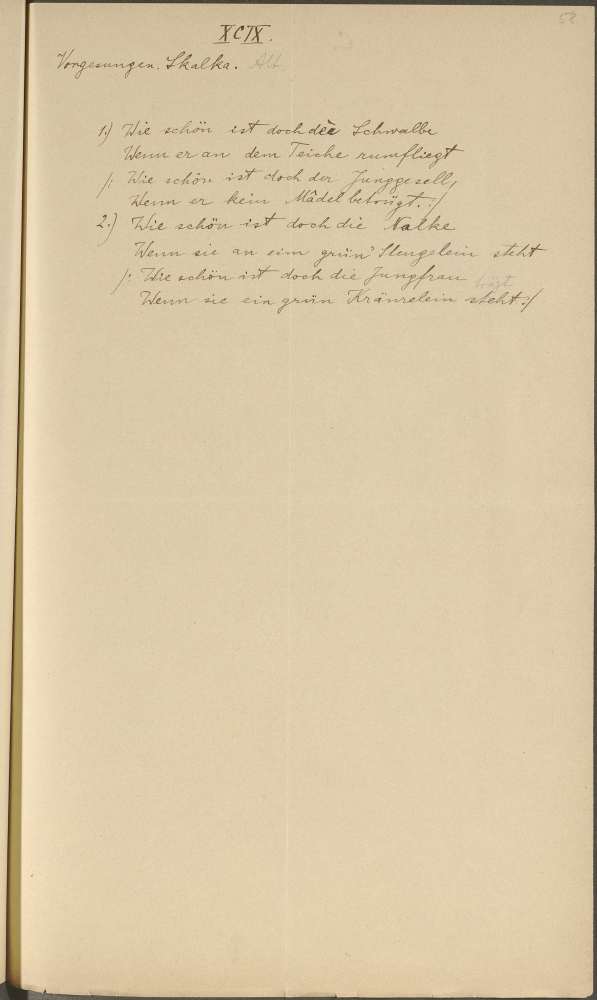 52
XCIX.
Vorgesungen. Skalka. Alt
1.) Wie schön ist doch die Schwalbe
Wenn er an dem Teiche rumfliegt
/: Wie schön ist doch der Junggesell,
Wenn er kein Mädel betrügt. :/
2.) Wie schön ist doch die Nalke
Wenn sie an eim grün' Stengelein steht
/: Wie schön ist doch die Jungfrau
trägt
Wenn sie ein grün Kränzelein steht :/